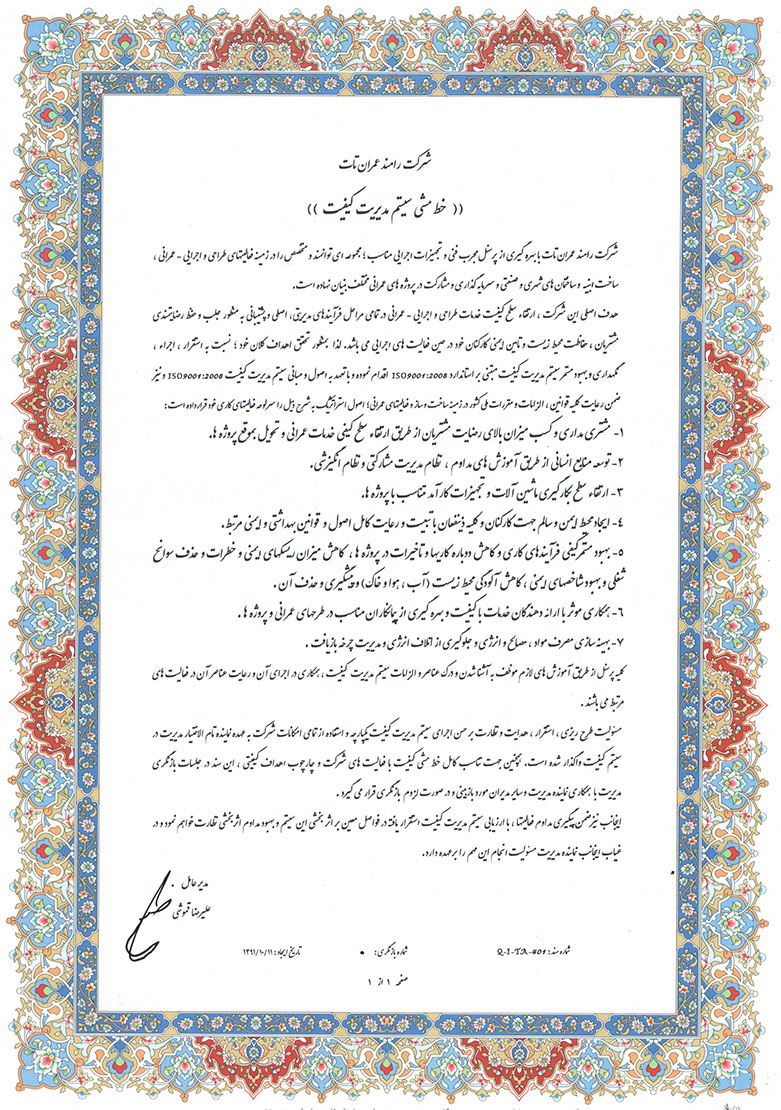 شرکت رامند عمران تات
(( خط مشی سیستم مدیریت کیفیت ))
شرکت رامند عمران تات با بهره گیری از پرسنل مجرب فنی و تجهیزات اجرایی مناسب ؛ مجموعه ای توانمند و متخصص را در زمینه فعالیتهای طراحی و اجرایی - عمرانی ،
ساخت ابنیه و ساختمان های شهری و صنعتی و سرمایه گذاری و مشارکت در پروژه های عمرانی مختلف بنیان نهاده است.
هدف اصلی این شرکت ، ارتقاء سطح کیفیت خدمات طراحی و اجرایی - عمرانی در تمامی مراحل فرآیندهای مدیریتی، اصلی و پشتیبانی به منظور جلب و حفظ رضایتمندی
مشتریان ، حفاظت محیط زیست و تامین ایمنی کارکنان خود در حین فعالیت های اجرایی می باشد. لذا بمنظور تحقق اهداف کلان خود ؛ نسبت به استقرار ، اجراء ،
نگهداری و بهبود مستمر سیستم مدیریت کیفیت مبتنی بر استاندارد ISO9001:2008 اقدام نموده و با تعهد به اصول و مبانی سیستم مدیریت کیفیت ISO9001:2008 و نیز
ضمن رعایت کلیه قوانین ، الزامات و مقررات ملی کشور در زمینه ساخت و ساز و فعالیتهای عمرانی؛ اصول استراتژیک به شرح ذیل را سرلوحه فعالیتهای کاری خود قرار داده است:
۱- مشتری مداری و کسب میزان بالای رضایت مشتریان از طریق ارتقاء سطح کیفی خدمات عمرانی و تحویل بموقع پروژه ها.
۲- توسعه منابع انسانی از طریق آموزش های مداوم ، نظام مدیریت مشارکتی و نظام انگیزشی.
۳- ارتقاء سطح بکارگیری ماشین آلات و تجهیزات کارآمد متناسب با پروژه ها.
٤- ایجاد محیط ایمن و سالم جهت کارکنان و کلیه ذینفعان با تبیت و رعایت کامل اصول و قوانین بهداشتی و ایمنی مرتبط.
٥- بهبود مستمر کیفی فرآیندهای کاری و کاهش دوباره کاریها و تأخیرات در پروژه ها ، کاهش میزان ریسکهای ایمنی و خطرات و حذف سوانح
شغلی و بهبود شاخصهای ایمنی ، کاهش آلودگی محیط زیست (آب ، هوا و خاک) و پیشگیری و حذف آن .
۶- همکاری موثر با ارائه دهندگان خدمات با کیفیت و بهره گیری از پیمانکاران مناسب در طرحهای عمرانی و پروژه ها .
۷- بهینه سازی مصرف مواد ، مصالح و انرژی و جلوگیری از اتلاف انرژی و مدیریت چرخه بازیافت .
کلیه پرسنل از طریق آموزش های لازم موظف به آشنا شدن و درک عناصر و الزامات سیستم مدیریت کیفیت ، همکاری در اجرای آن و رعایت عناصر آن در فعالیت های
مرتبط می باشند .
مسئولیت طرح ریزی ، استقرار ، هدایت و نظارت بر حسن اجرای سیستم مدیریت کیفیت یکپارچه و استفاده از تمامی امکانات شرکت به عهده نماینده تام الاختیار مدیریت در
سیستم کیفیت واگذار شده است. همچنین جهت تناسب کامل خط مشی کیفیت با فعالیت های شرکت و چارچوب اهداف کیفیتی ، این سند در جلسات بازنگری
مدیریت با همکاری نماینده مدیریت و سایر مدیران مورد بازبینی و در صورت لزوم بازنگری قرار می گیرد .
اینجانب نیز ضمن پیگیری مداوم فعالیتها ، با ارزیابی سیستم مدیریت کیفیت استقرار یافته در فواصل معین بر اثر بخشی این سیستم و بهبود مداوم اثربخشی نظارت خواهم نمود و در
غیاب اینجانب نماینده مدیریت مسئولیت انجام این مهم را بر عهده دارد.
مدیر عامل
علیرضا قموشی
شماره سند : Q-I-TA-401 شماره بازنگری : ۰ تاریخ ایجاد : ۱۳۹۱/۱۰/۱۱
صفحه ۱ از ۱